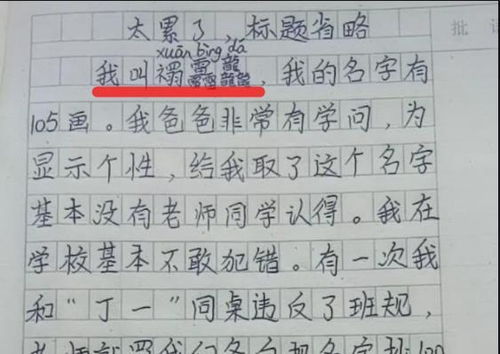 批
太累了,标题省略
xuān bìng dá
我叫禤靐龘,我的名字有
105画。我爸爸非常有学问,为
显示个性,给我取了这个名字
基本没有老师同学认得。我在
学校基本不敢犯错。有一次我
和“丁一”同桌违反了班规,
老师就罚我们各自把名字抄100